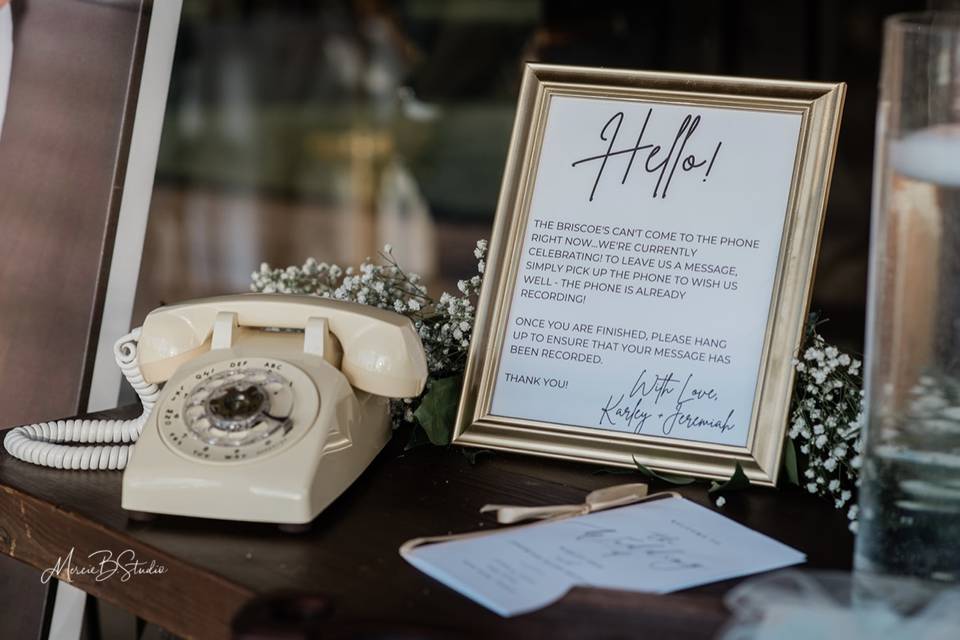 Hello!
THE BRISCOE'S CAN'T COME TO THE PHONE
RIGHT NOW...WE'RE CURRENTLY
CELEBRATING! TO LEAVE US A MESSAGE,
SIMPLY PICK UP THE PHONE TO WISH US
WELL - THE PHONE IS ALREADY
RECORDING!
ONCE YOU ARE FINISHED, PLEASE HANG
UP TO ENSURE THAT YOUR MESSAGE HAS
BEEN RECORDED.
THANK YOU!
With Love,
Karley + Jeremiah
ABC
DEF
MercieBStudio